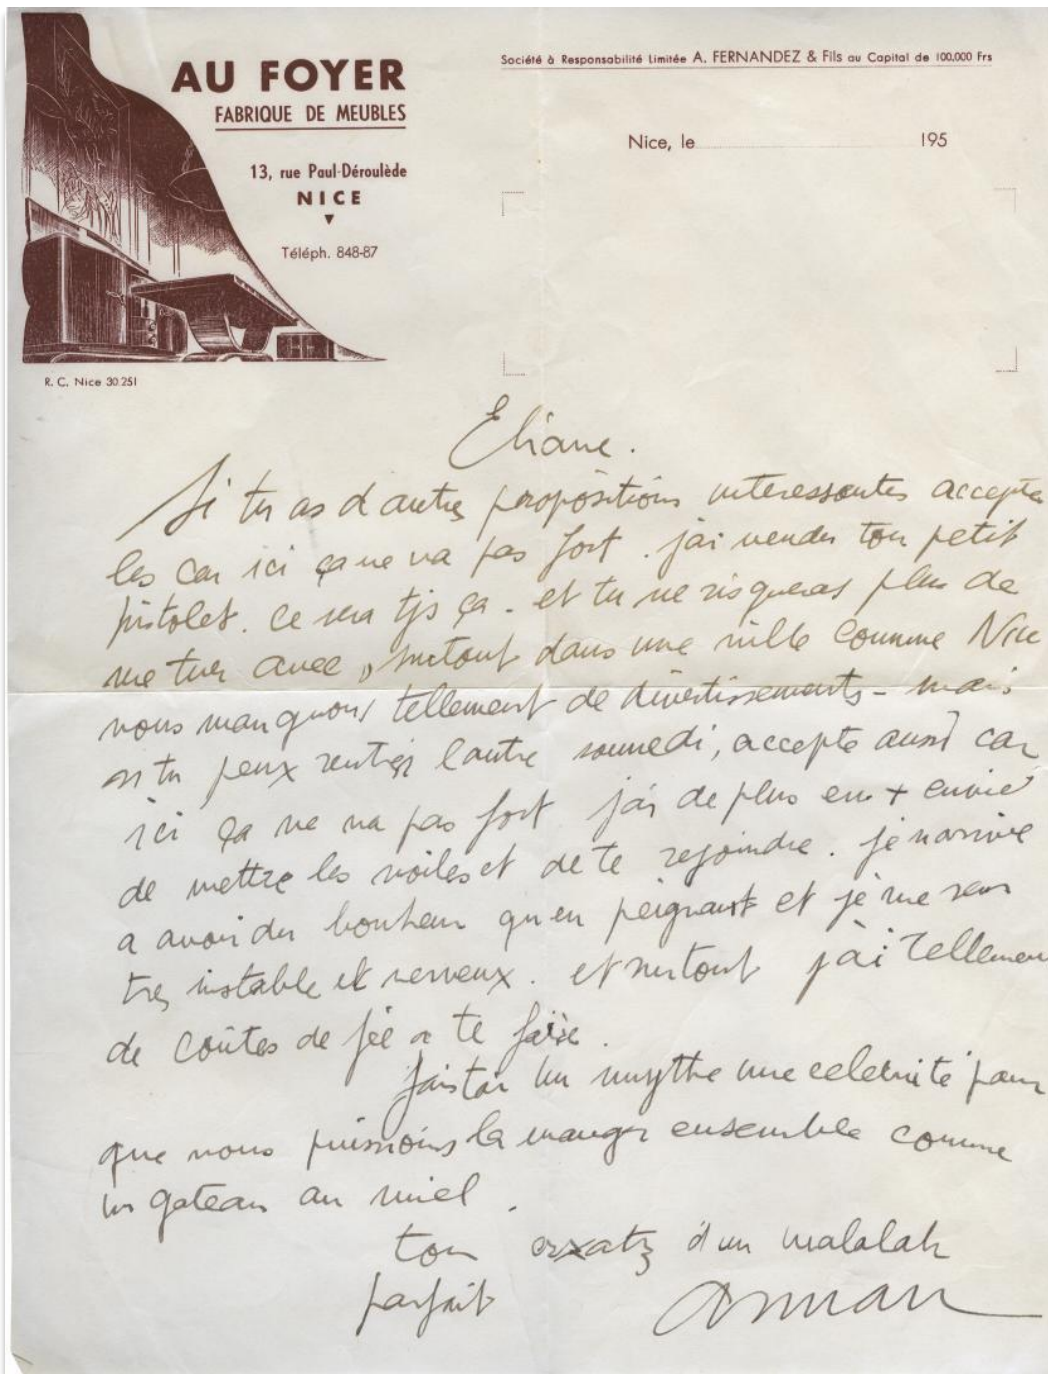 AU FOYER
FABRIQUE DE MEUBLES
13, rue Paul-Déroulède
NICE
Téléph. 848-87
R. C. Nice 30.251
Société à Responsabilité Limitée A. FERNANDEZ & Fils au Capital de 100.000 Frs
Nice, le 195
Eliane.
Si tu as d autres propositions interessantes accepte
les car ici ça ne va pas fort. j'ai vendu ton petit
pistolet. ce sera tjs ça - et tu ne risqueras plus de
me tuer avec, surtout dans une ville comme Nice
nous manquons tellement de divertissements - mais
si tu peux rentrer l'autre samedi, accepte aussi car
ici ça ne va pas fort j'ai de plus en + envie
de mettre les voiles et de te rejoindre. je n arrive
a avoir du bonheur qu en peignant et je me sens
tres instable et nerveux. et surtout j'ai tellement
de contes de fée a te faire.
fais toi un mythe une celebrité pour
que nous puissions la manger ensemble comme
un gateau au miel.
ton erzatz d'un malalah
parfait Arman